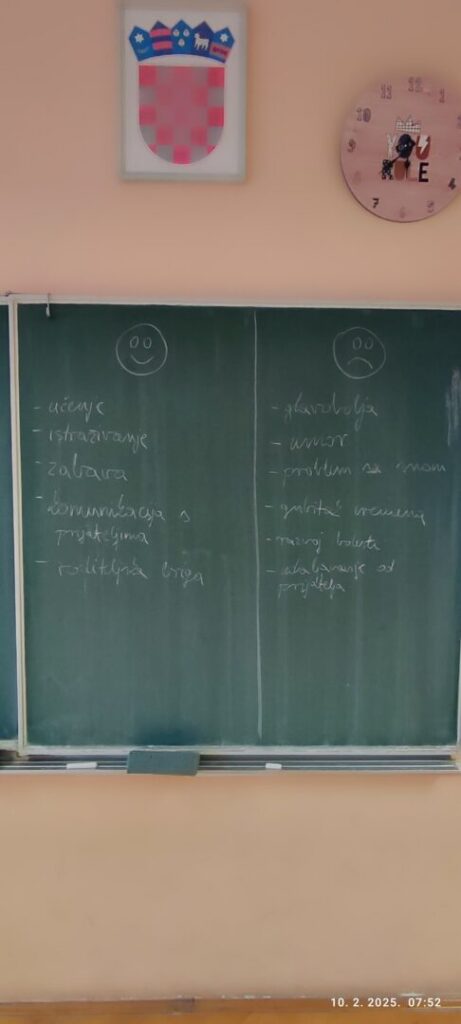 12
1
11
10
9
8
7
6
5
4
YOU
RULE
- učenje
- istraživanje
- zabava
- komunikacija s
prijateljima
- roditeljska briga
- glavobolja
- umor
- problem sa snom
- gubitak vremena
- razvoj bolesti
- udaljavanje od
prijatelja
10. 2. 2025. 07:52